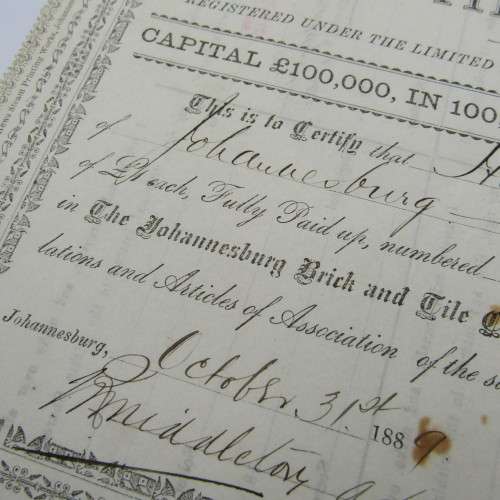 REGISTERED UNDER THE LIMITED
CAPITAL £100,000, IN 100
This is to Certify that
of Johannesburg
of £1 each, Fully Paid up, numbered
in The Johannesburg Brick and Tile
lations and Articles of Association of the s
Johannesburg, October 31st 1889.
Middleton